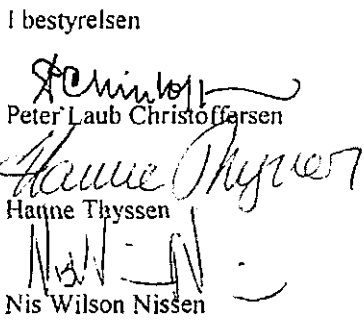 I bestyrelsen
Peter Laub Christoffersen
Hanne Thyssen
Hanne Thyssen
Nis Wilson Nissen